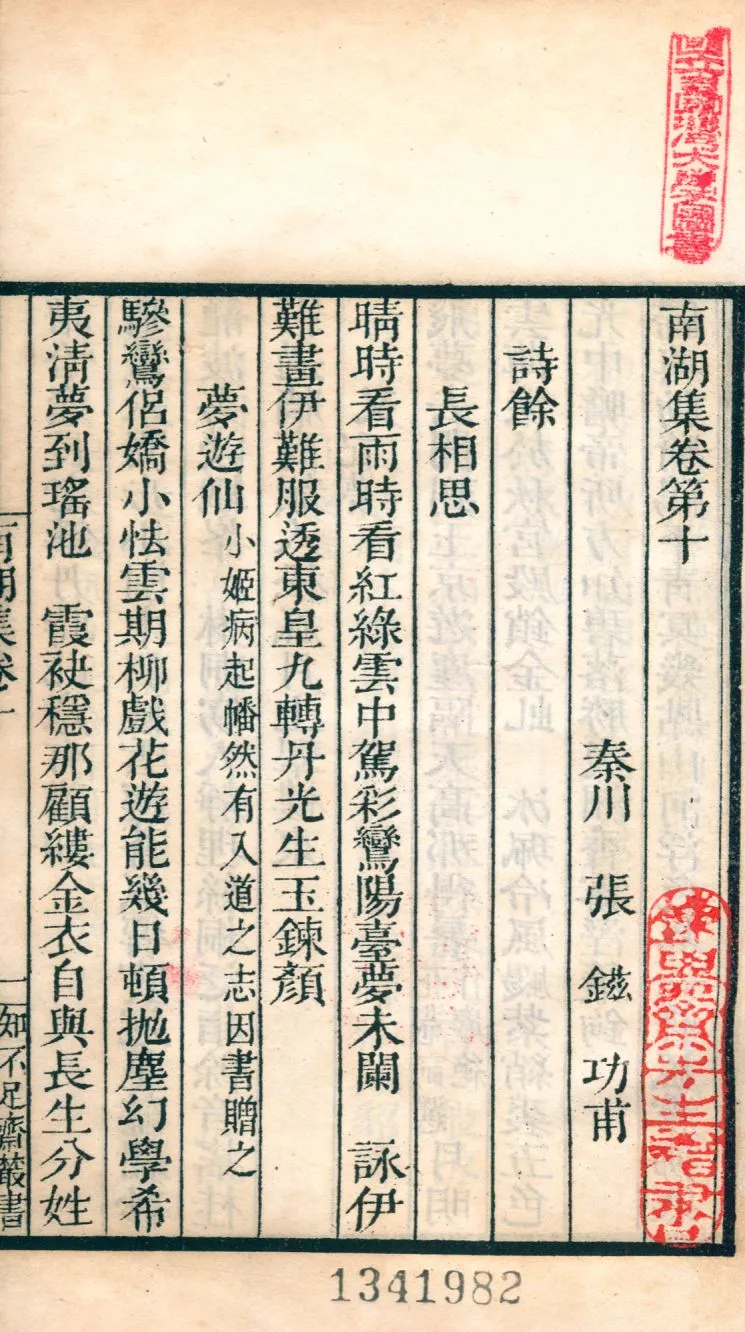 南湖集卷第十
秦川 張 鎡 功甫
詩餘
長相思
晴時看雨時看紅綠雲中駕彩鸞陽臺夢未闌 詠伊
難畫伊難服透東皇九轉丹光生玉鍊顏
夢遊仙 小姬病起幡然有入道之志因書贈之
驂鸞侶嬌小怯雲期柳戲花遊能幾日頓拋塵幻學希
夷淸夢到瑤池 霞袂穩那顧縷金衣自與長生分姓
南湖集卷十
一 知不足齋叢書
臺灣大學圖書
先生
1341982